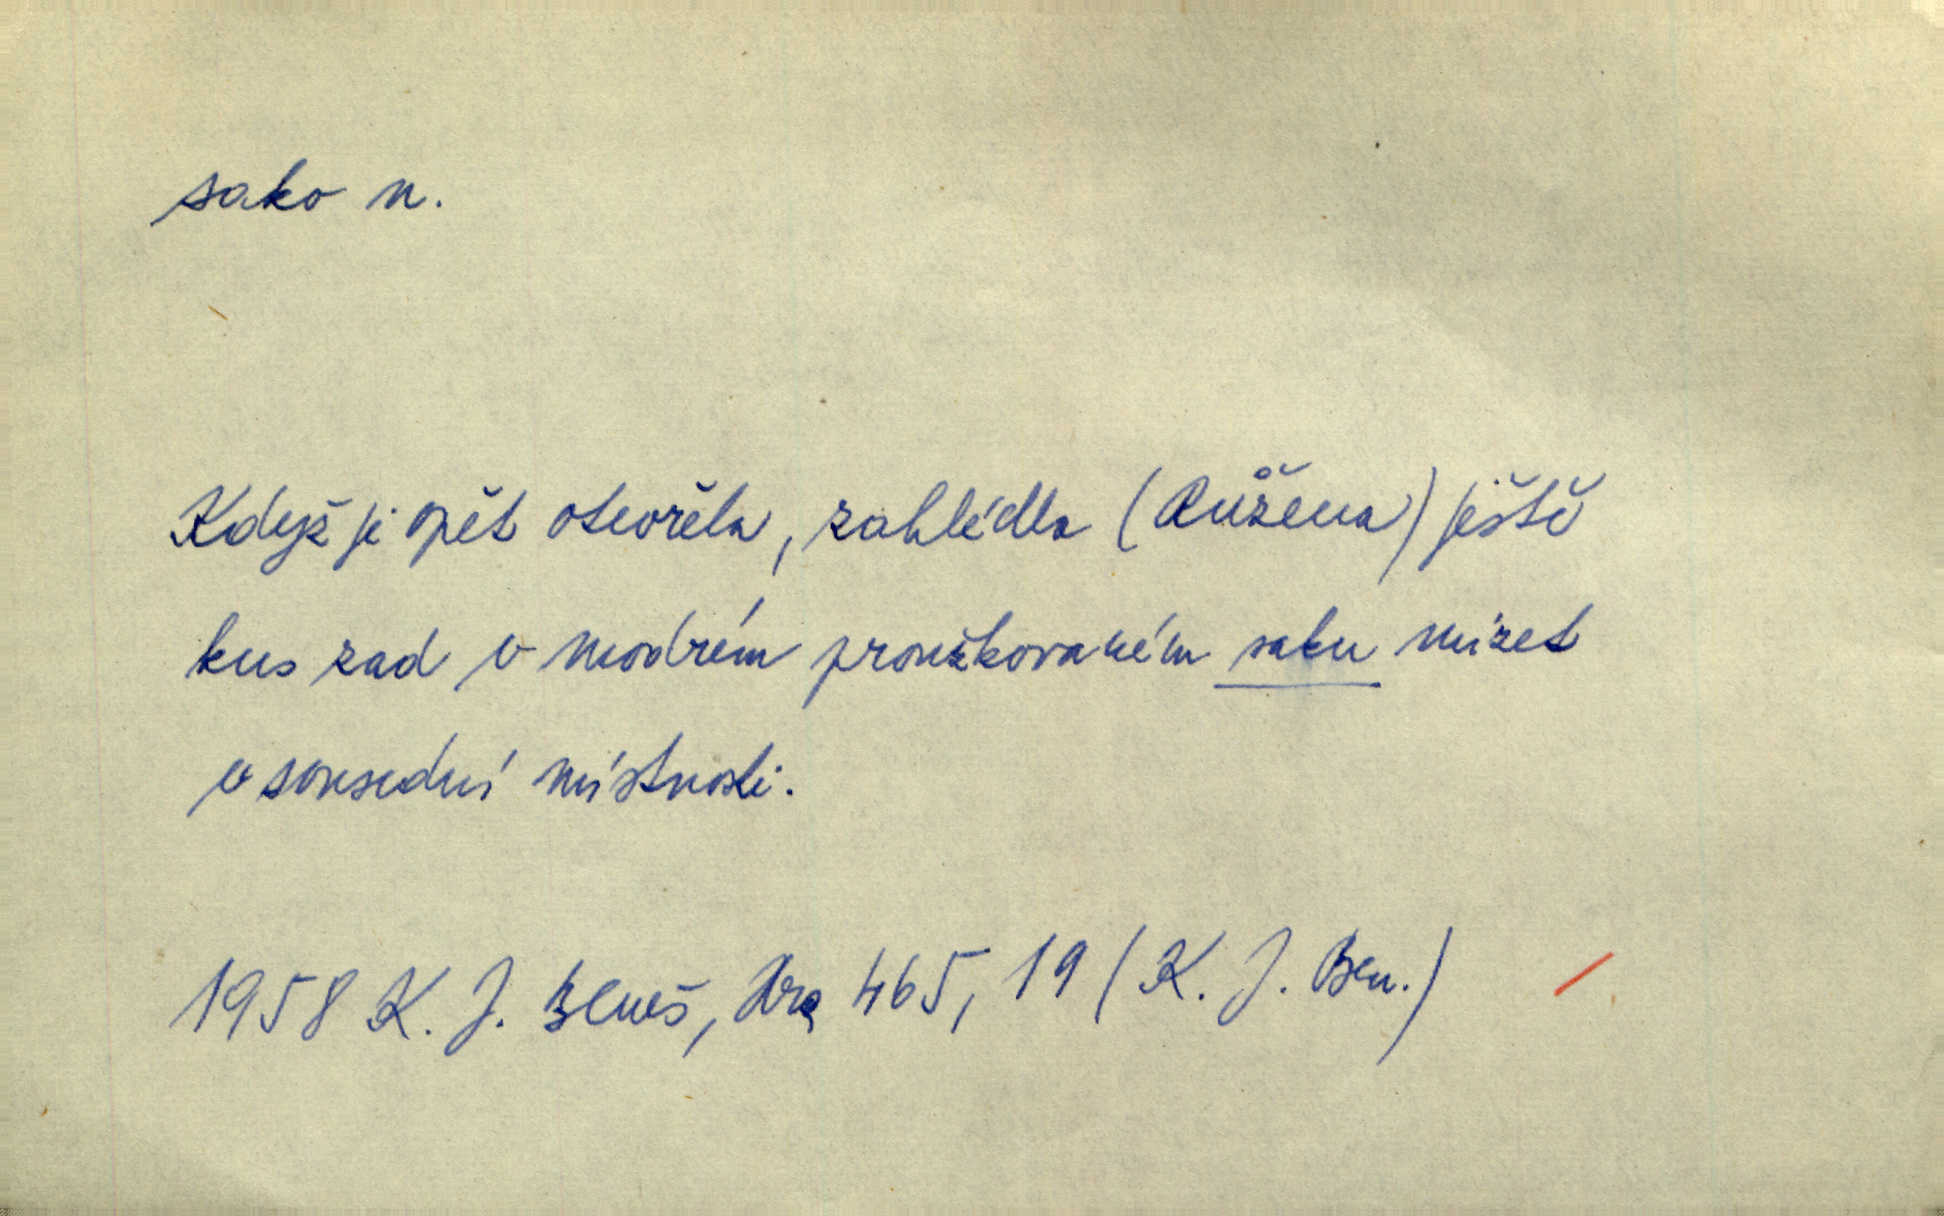 sako n.
Když je opět otevřela, zahlédla (Růžena) ještě
kus zad v modrém proužkovaném saku mizet
v sousední místnosti.
1958 K. J. Beneš, Hra 465, 19 (K. J. Ben.)